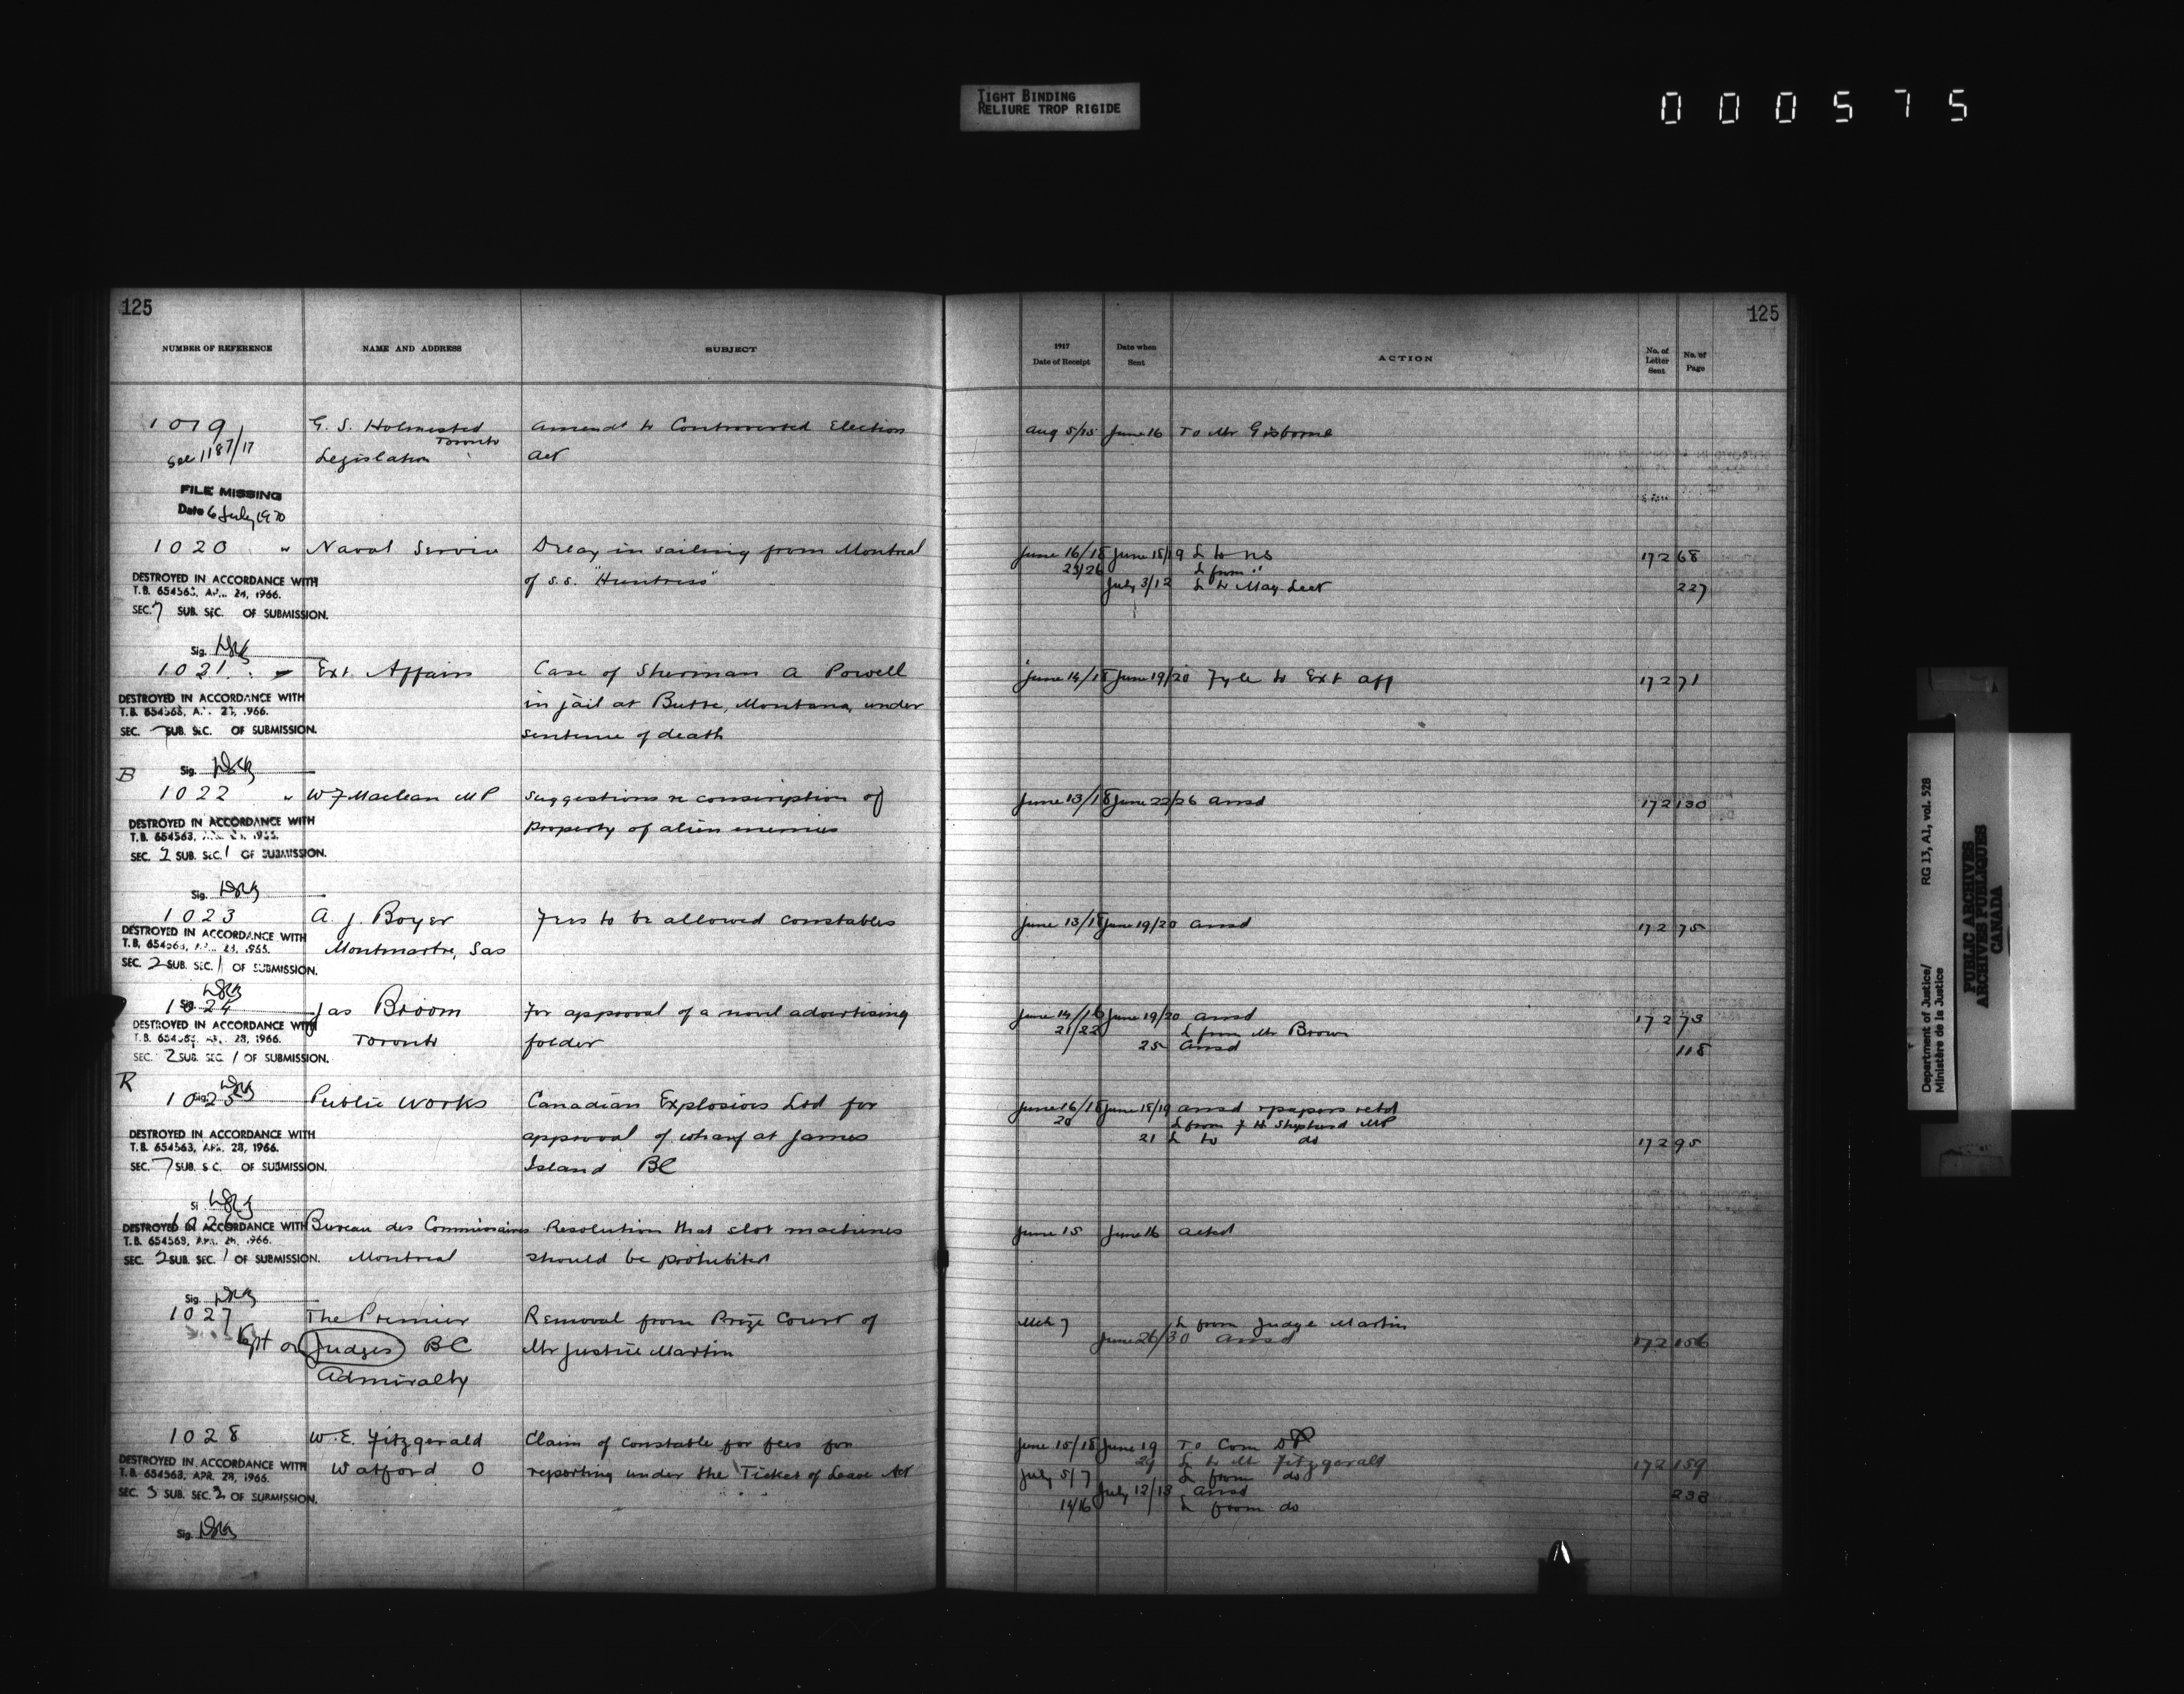 TIGHT BINDING
RELIURE TROP RIGIDE
000575
125
NUMBER OF REFERENCE NAME AND ADDRESS SUBJECT
1019 G. S. Holmested Amendt to Controverted Election
See 1187/17 Toronto
Legislation Act
FILE MISSING
Date 6 July 1970
1020 " Naval Service Delay in sailing from Montreal
DESTROYED IN ACCORDANCE WITH of s.s. "Huntress"
T.B. 654563, APR. 28, 1966.
SEC. 7 SUB. SEC. OF SUBMISSION.
Sig.
1021 " Ext. Affairs Case of Sherman A Powell
DESTROYED IN ACCORDANCE WITH in jail at Butte, Montana, under
T.B. 654563, APR. 28, 1966.
SEC. 7 SUB. SEC. OF SUBMISSION. sentence of death
Sig.
B
1022 " W F Maclean MP Suggestions re conscription of
DESTROYED IN ACCORDANCE WITH property of alien enemies
T.B. 654563, APR. 28, 1966.
SEC. 2 SUB. SEC. 1 OF SUBMISSION.
Sig.
1023 A. J. Boyer Fees to be allowed constables
DESTROYED IN ACCORDANCE WITH Montmartre, Sas
T.B. 654563, APR. 28, 1966.
SEC. 2 SUB. SEC. 1 OF SUBMISSION.
Sig.
1024 Jas Broom For approval of a novel advertising
DESTROYED IN ACCORDANCE WITH Toronto folder
T.B. 654563, APR. 28, 1966.
SEC. 2 SUB. SEC. 1 OF SUBMISSION.
R Sig.
1025 Public Works Canadian Explosives Ltd for
DESTROYED IN ACCORDANCE WITH approval of wharf at James
T.B. 654563, APR. 28, 1966.
SEC. 7 SUB. SEC. OF SUBMISSION. Island BC
Sig.
1026 Bureau des Commissaires Resolution that slot machines
DESTROYED IN ACCORDANCE WITH
T.B. 654563, APR. 28, 1966.
SEC. 2 SUB. SEC. 1 OF SUBMISSION. Montreal should be prohibited
Sig.
1027 The Premier Removal from Prize Court of
Kept on Judges BC Mr Justice Martin
Admiralty
1028 W. E. Fitzgerald Claim of constable for fees for
DESTROYED IN ACCORDANCE WITH Watford O reporting under the Ticket of Leave Act
T.B. 654563, APR. 28, 1966.
SEC. 3 SUB. SEC. 2 OF SUBMISSION.
Sig.
125
1917
Date of Receipt Date when Sent ACTION No. of Letter Sent No. of Page
Aug 5/15 June 16 To Mr Gisborne
June 16/18 June 18/19 L to NS 172 68
25/26 L from "
July 3/12 L to 227
June 14/18 June 19/20 Fyle to Ext aff 172 71
June 13/18 June 22/26 ansd 172 130
June 13/18 June 19/20 ansd 172 75
June 14/16 June 19/20 ansd 172 73
21/22 L from Mr Broom
25 ansd 118
June 16/18 June 18/19 ansd & papers retd
20 L from F H Shepherd MP
21 L to do 172 95
June 15 June 16 ackd
Mch 7 L from Judge Martin
June 26/30 ansd 172 156
June 15/18 June 19 To Com DP
29 L to Mr Fitzgerald 172 159
July 5/7 L from do
July 12/13 ansd 238
14/16 L from do
Department of Justice/ RG 13, A1, vol. 528
Ministère de la Justice
PUBLIC ARCHIVES
ARCHIVES PUBLIQUES
CANADA